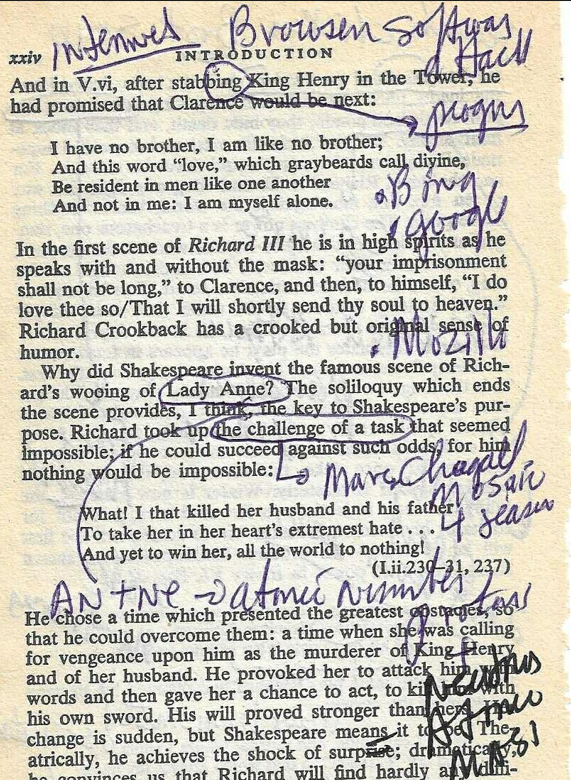 internet Browser software
attack
xxiv INTRODUCTION
And in V.vi, after stabbing King Henry in the Tower, he
had promised that Clarence would be next:
I have no brother, I am like no brother;
And this word “love,” which graybeards call divine,
Be resident in men like one another
And not in me: I am myself alone.
• Bing
• google
In the first scene of Richard III he is in high spirits as he
speaks with and without the mask: “your imprisonment
shall not be long,” to Clarence, and then, to himself, “I do
love thee so/That I will shortly send thy soul to heaven.”
Richard Crookback has a crooked but original sense of
• Mozilla
humor.
Why did Shakespeare invent the famous scene of Rich-
ard’s wooing of Lady Anne? The soliloquy which ends
the scene provides, I think, the key to Shakespeare’s pur-
pose. Richard took up the challenge of a task that seemed
impossible; if he could succeed against such odds, for him
nothing would be impossible:
Marc Chagall
Mosaic
What! I that killed her husband and his father
To take her in her heart’s extremest hate . . .
4 season
And yet to win her, all the world to nothing!
(I.ii.230–31, 237)
AN + NE → atomic number
He chose a time which presented the greatest obstacles, so
protons
that he could overcome them: a time when she was calling
for vengeance upon him as the murderer of King Henry
and of her husband. He provoked her to attack him with
words and then gave her a chance to act, to kill him with
his own sword. His will proved stronger than hers.
change is sudden, but Shakespeare means it to be. The-
atrically, he achieves the shock of surprise; dramatically,
he convinces us that Richard will find hardly